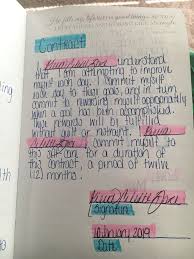 Contract
I, understand
that I am attempting to improve
myself each day. I commit myself
each day to these goals, and in turn
commit to rewarding myself appropriately
when a goal has been accomplished.
These rewards will be fulfilled
without guilt or restraint. I,
commit myself to
this self care for a duration of
this contract, a period of twelve
(12) months.
Signature
10 January 2019
Date